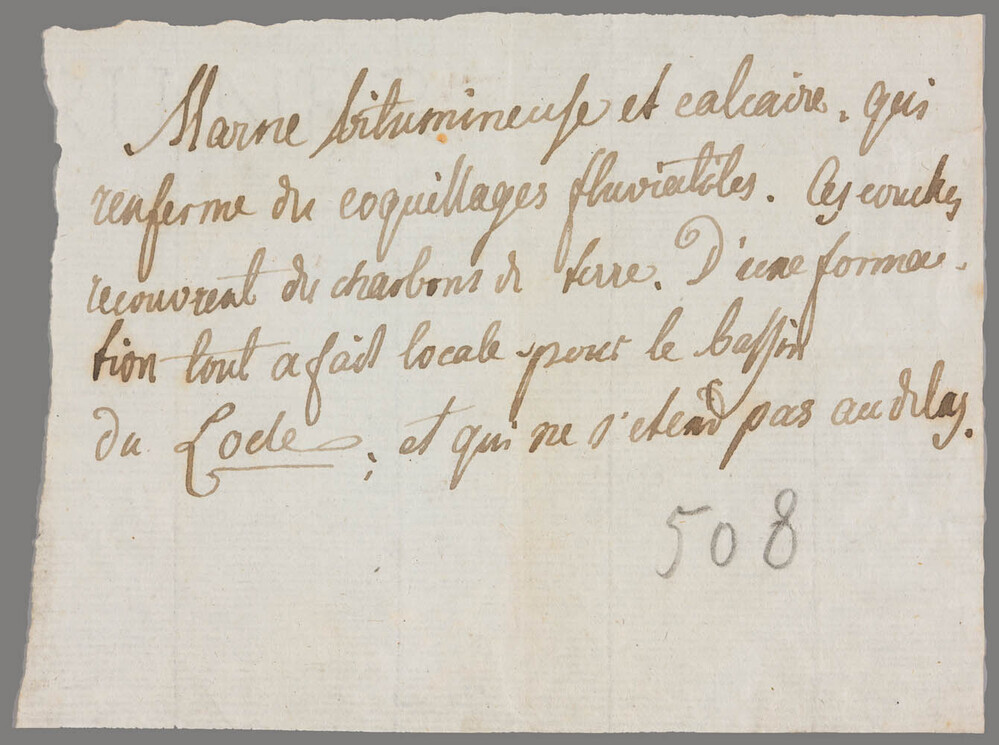 Marne bitumineuse et calcaire. qui
renferme du coquillages fluviatiles. Ces couches
recouvrent du charbons de terre. D'une forma-
tion tout a fait locale pour le bassin
du Locle; et qui ne s'etend pas au delas.
508